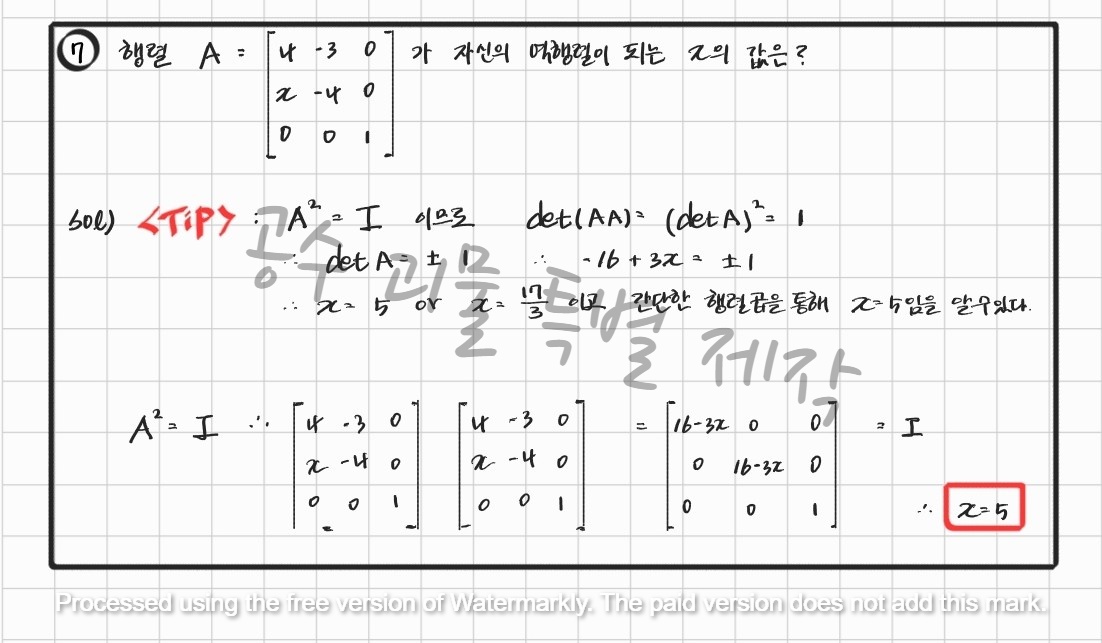 ⑦ 행렬 A = [4 -3 0
x -4 0
0 0 1] 가 자신의 역행렬이 되는 x의 값은?
sol) <TiP> : A² = I 이므로 det(AA) = (detA)² = 1
∴ det A = ± 1 ∴ -16 + 3x = ±1
∴ x = 5 or x = 17/3 이고 간단한 행렬곱을 통해 x=5임을 알수있다.
공수 괴물 특별 제작
A² = I ∴ [4 -3 0 [4 -3 0 = [16-3x 0 0 = I
x -4 0 x -4 0 0 16-3x 0
0 0 1] 0 0 1] 0 0 1] ∴ x=5
Processed using the free version of Watermarkly. The paid version does not add this mark.